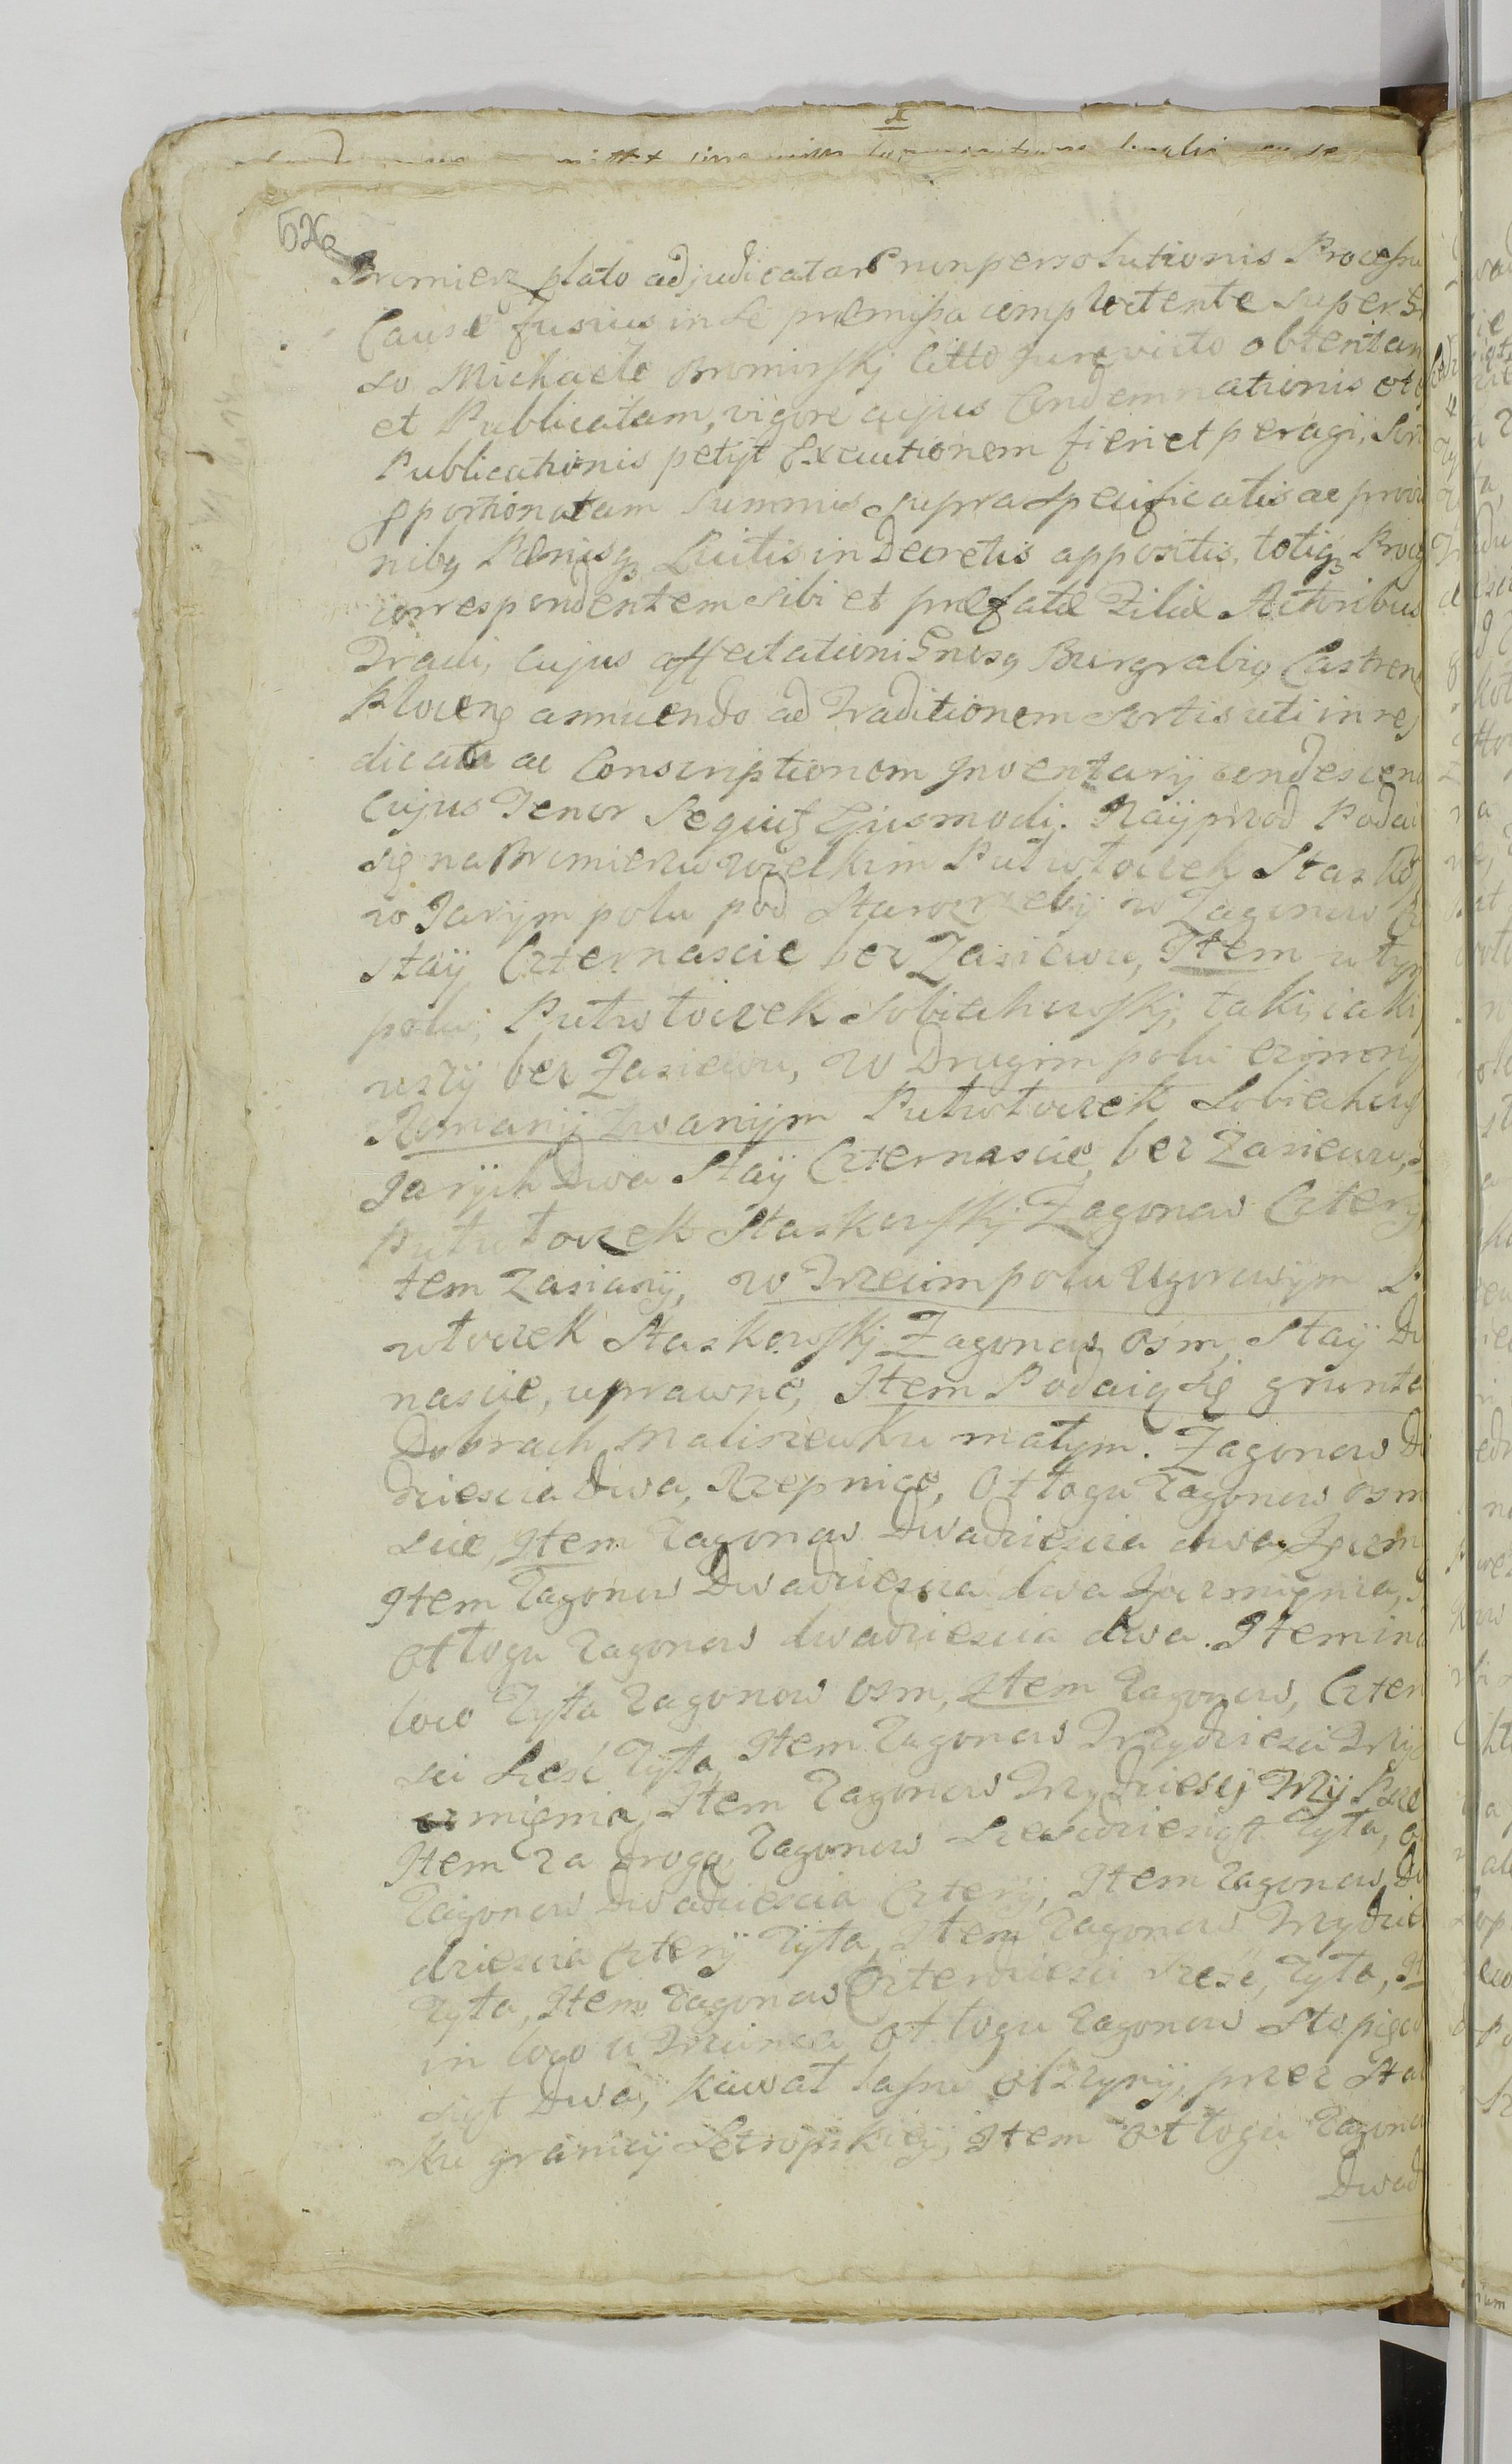 526
Bromierz plato adjudicatar nonpersolutionis Processu
Causæ fusius in se præmissa complectente super
so Michaele Bromirskj citto Jure victo obtentam
et Publicatam, vigore cujus Condemnationis et
Publicationis petijt Executionem fieri et peragi, Sor
pportionatam summis supra specificatis ac provi
nibq Pænisq Luitis in Decretis appositis, totiq Proce
correspondentem sibi et præfatæ Filiæ Actoribus
Tradi, cujus affectationi Gnosq Burgrabiq Castren
Plocen annuendo ad Traditionem sortis uti in re
dicata ac Conscriptionem Inventarij condescen
Cujus Tenor Sequit Ejusmodi. Naÿprzod Podai
się na Bromierzu wielkim Putwłoczek Stask
w Jarym polu pod Starorzeby w Zagonow
Staÿ Czternascie bez Zasiewu, Item w tym
polu, Putwłoczek Sobiechowskj, taki, iaki
wszÿ bez Zasiewu, w Drugim polu ozimem
Romanÿ Zwanÿm Putwłoczek Sobiechow
Jarÿch Dwa Staÿ Czternascie, bez Zasiewu,
Putwłoczek Staskowskj Zagonow Cztery
tem zasianÿ, w Trzecim polu Ugorowÿm
włoczek Staskowskj Zagonow osm, Staÿ
nascie, uprawne, Item Podaią się grunta
Dobrach Maliszewku małym. Zagonow
dziescia dwa, Rzepnice, Otłogu zagonow osm
scie, Item zagonow Dwadziescia dwa,
Item Zagonow Dwadziescia dwa Jęczmięnia,
otłogu zagonow dwadziescia dwa. Item in
loco Zyta zagonow osm, Item zagonow, Czter
sci szesc Zyta, Item zagonow Trzydziesci Trzÿ
czmięnia, Item zagonow Trzydziescj Trzÿ
Item za drogą, zagonow Szescdziesiąt Zyta,
Zagonow Dwadziescia Czterÿ, Item zagonow
dziescia Czterÿ Zyta, Item zagonow Trzydzie
Zyta, Item zagonow Czterdziesci szesc, Zyta,
in loco u otłogu zagonow Sto pięc
siąt Dwa, kawał lassu olszynÿ, przez
ku granicÿ Setropskieÿ, Item otłogu zagonow
Dwad